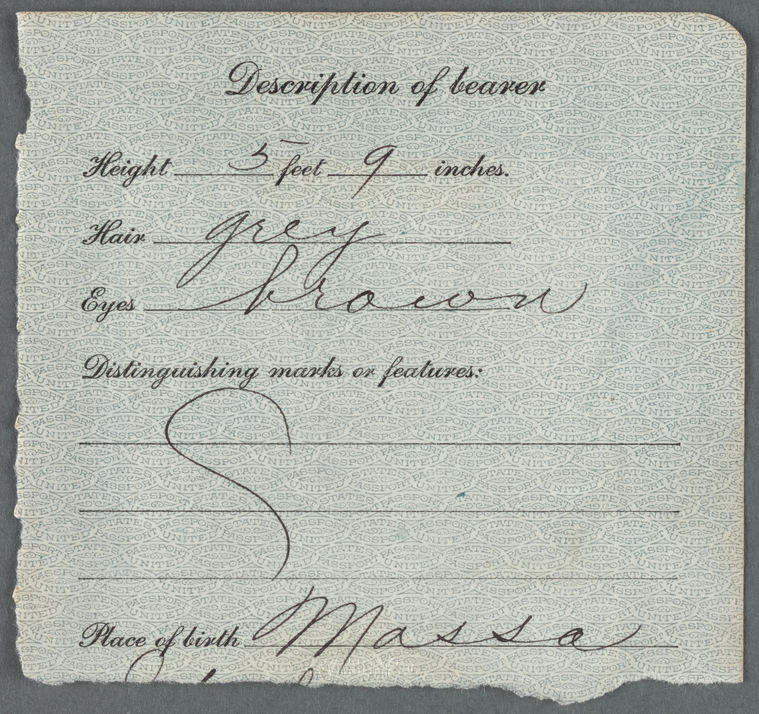 Description of bearer
Height 5 feet 9 inches.
Hair grey
Eyes brown
Distinguishing marks or features:
Place of birth Massa